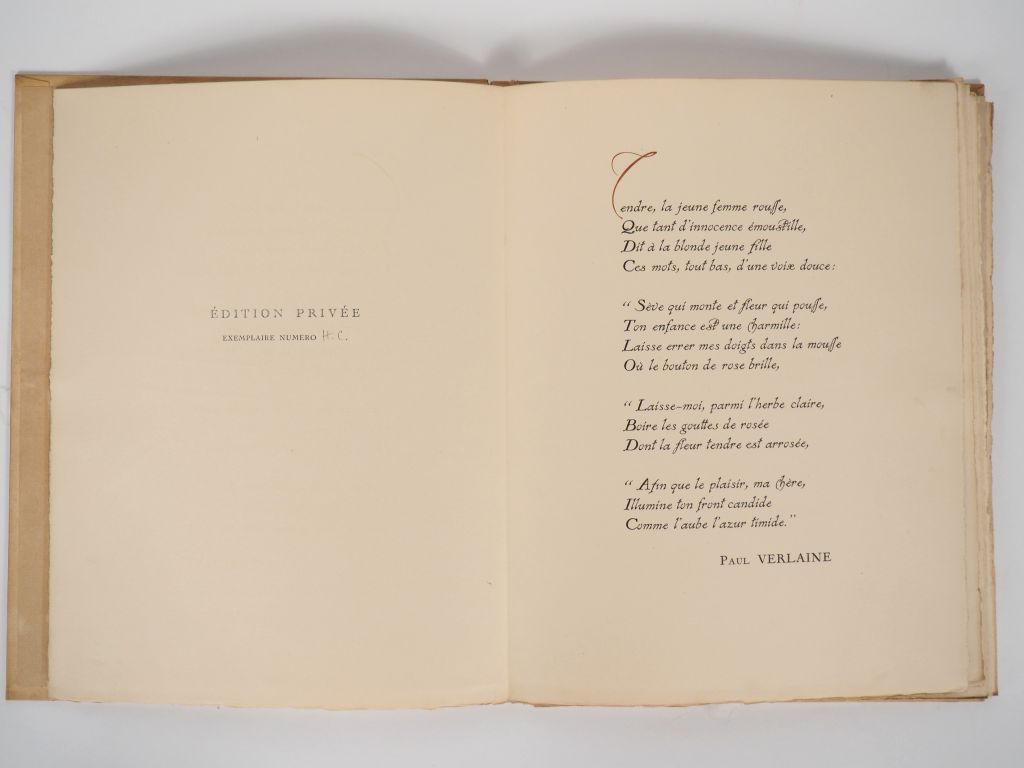 ÉDITION PRIVÉE
EXEMPLAIRE NUMERO H. C.
Tendre, la jeune femme rousse,
Que tant d'innocence émoustille,
Dit à la blonde jeune fille
Ces mots, tout bas, d'une voix douce :
“ Sève qui monte et fleur qui pousse,
Ton enfance est une charmille :
Laisse errer mes doigts dans la mousse
Où le bouton de rose brille,
“ Laisse-moi, parmi l'herbe claire,
Boire les gouttes de rosée
Dont la fleur tendre est arrosée,
“ Afin que le plaisir, ma chère,
Illumine ton front candide
Comme l'aube l'azur timide.”
PAUL VERLAINE